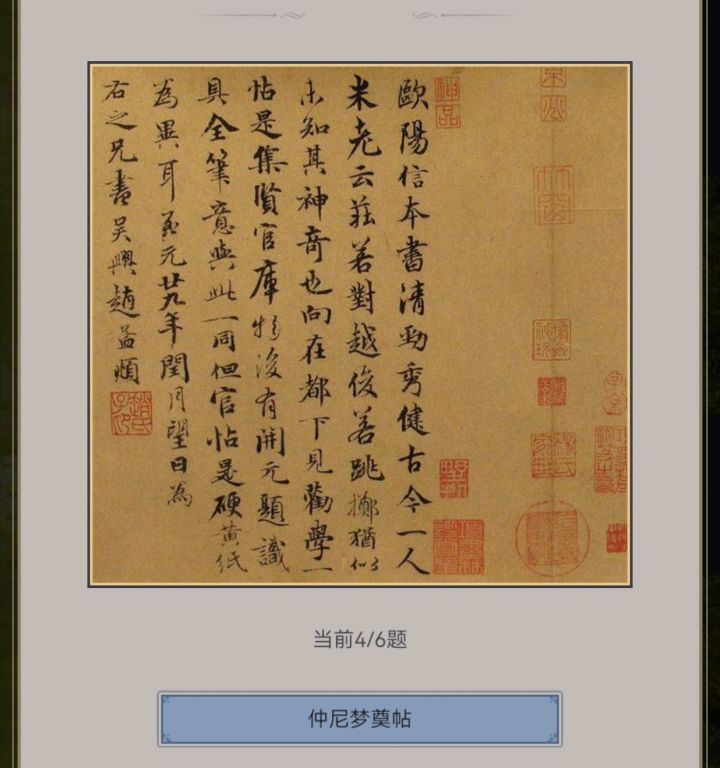 歐陽信本書清勁秀健古今一人
米老云莊若對越俊若跳擲猶似
未知其神奇也向在都下見勸學一
帖是集賢官庫物後有開元題識
具全筆意與此一同但官帖是硬黃紙
為異耳至元廿九年閏月望日為
右之兄書吳興趙孟頫
神品
趙氏子昂
当前4/6题
仲尼梦奠帖